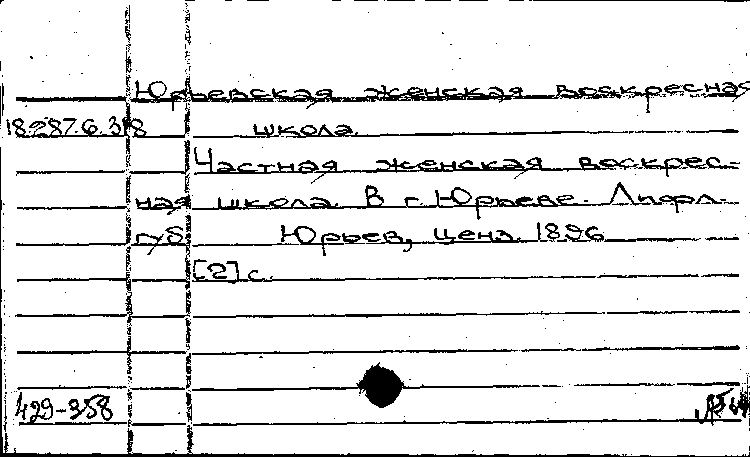 Юрьевская женская воскресная
18.287.6.318 школа.
Частная женская воскрес-
ная школа. В г. Юрьеве. Лифл.
губ. Юрьев, ценз. 1896
[2] с.
429-358